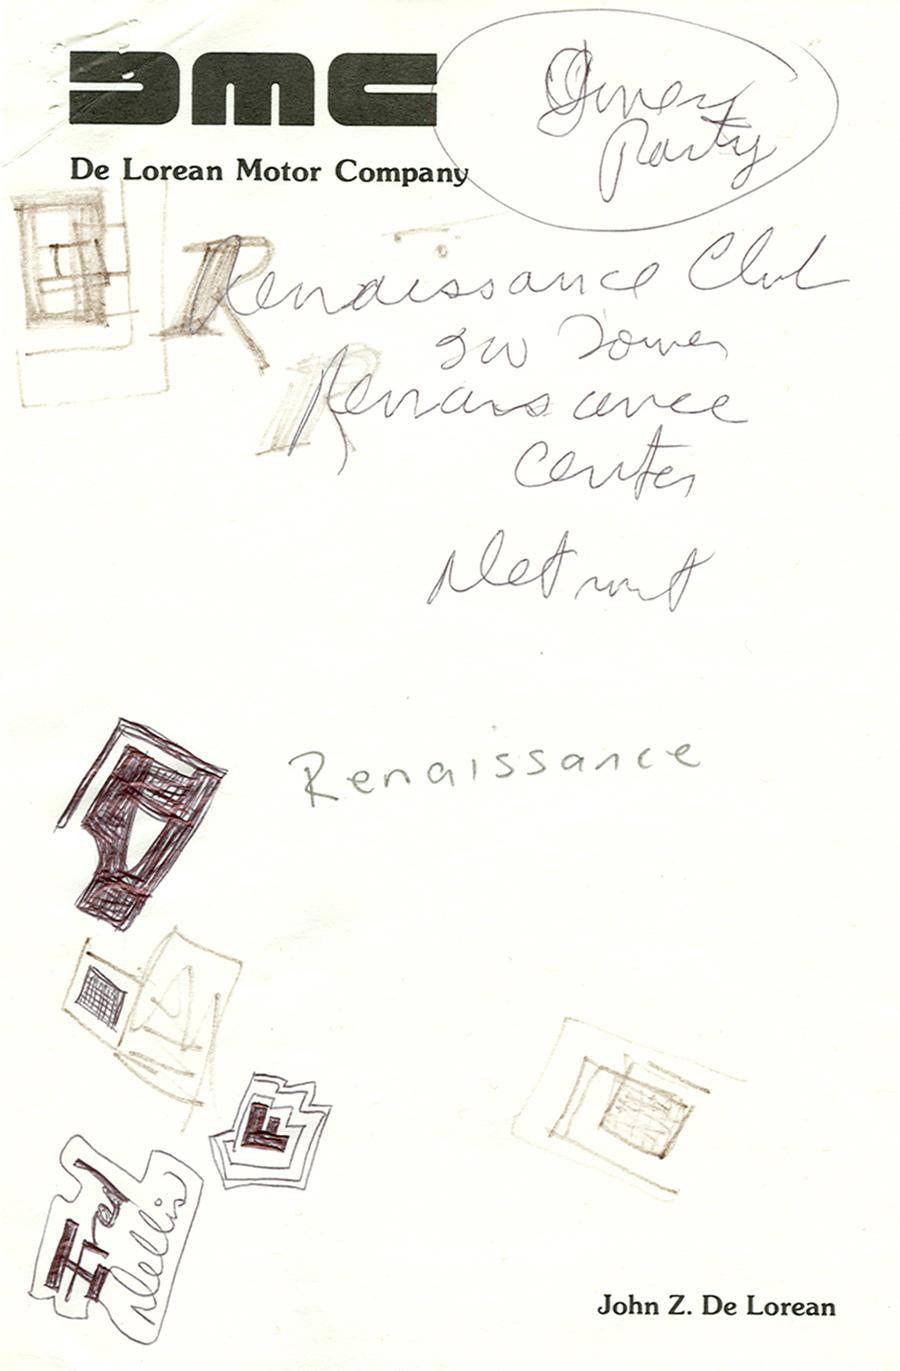 DMC
De Lorean Motor Company
Party
Renaissance Club
Tower
Renaissance
Center
Detroit
Renaissance
Fred
Dellis
John Z. De Lorean